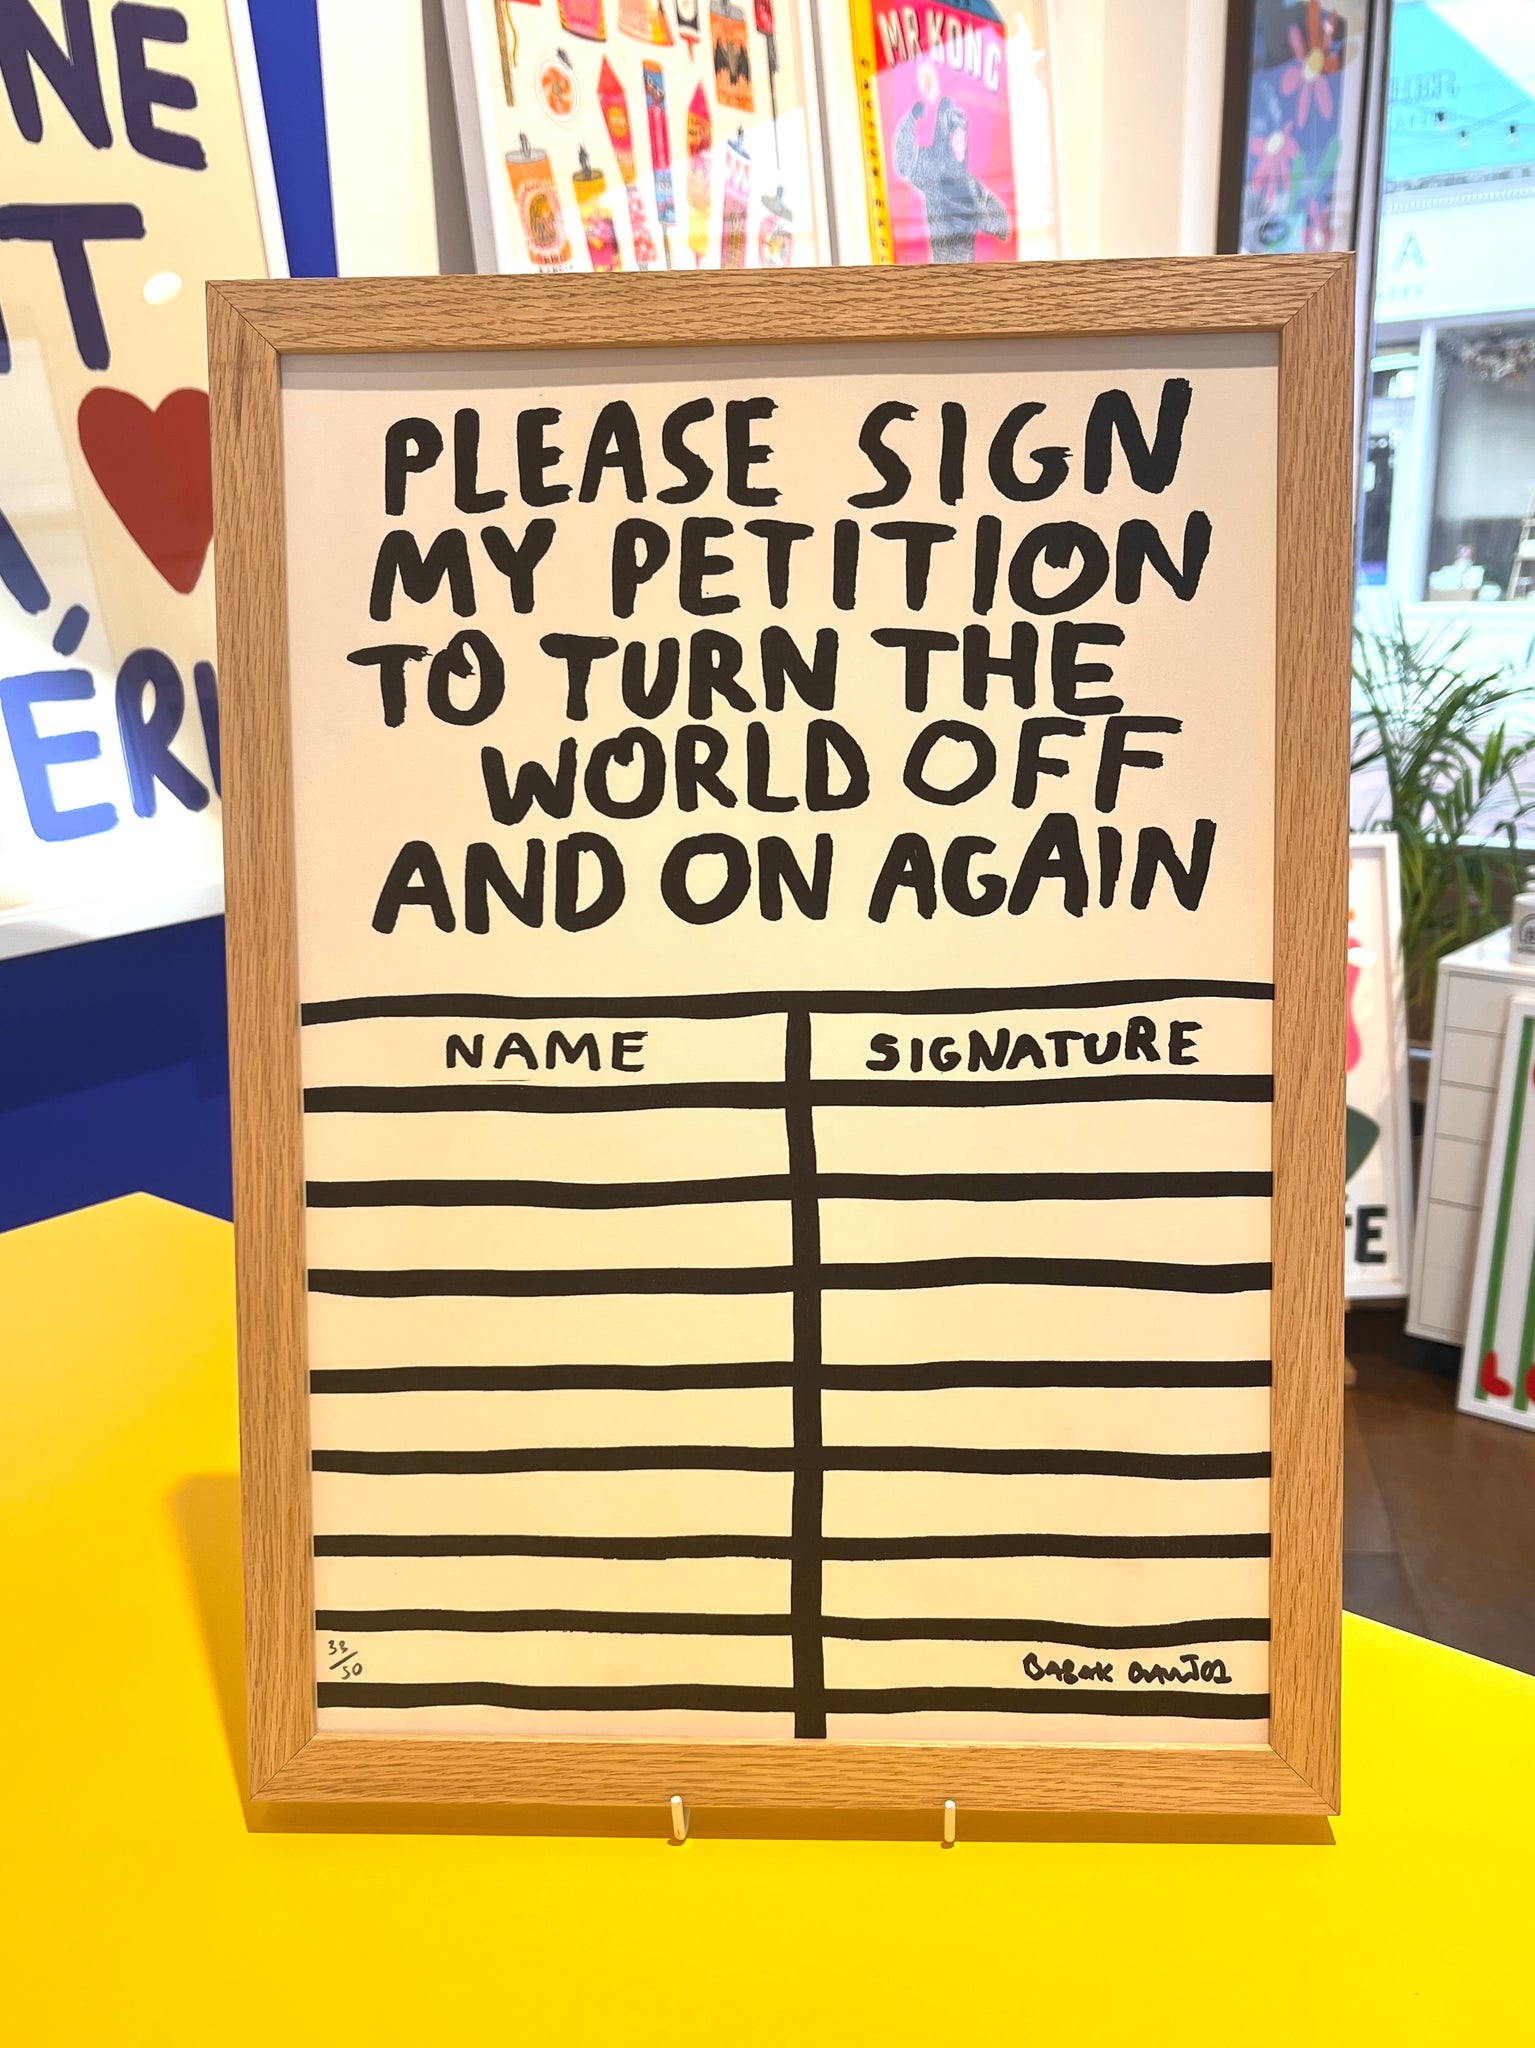 NE
T
ÉRI
MR KONG
PLEASE SIGN
MY PETITION
TO TURN THE
WORLD OFF
AND ON AGAIN
NAME SIGNATURE
33/50
BABAK GANJEI